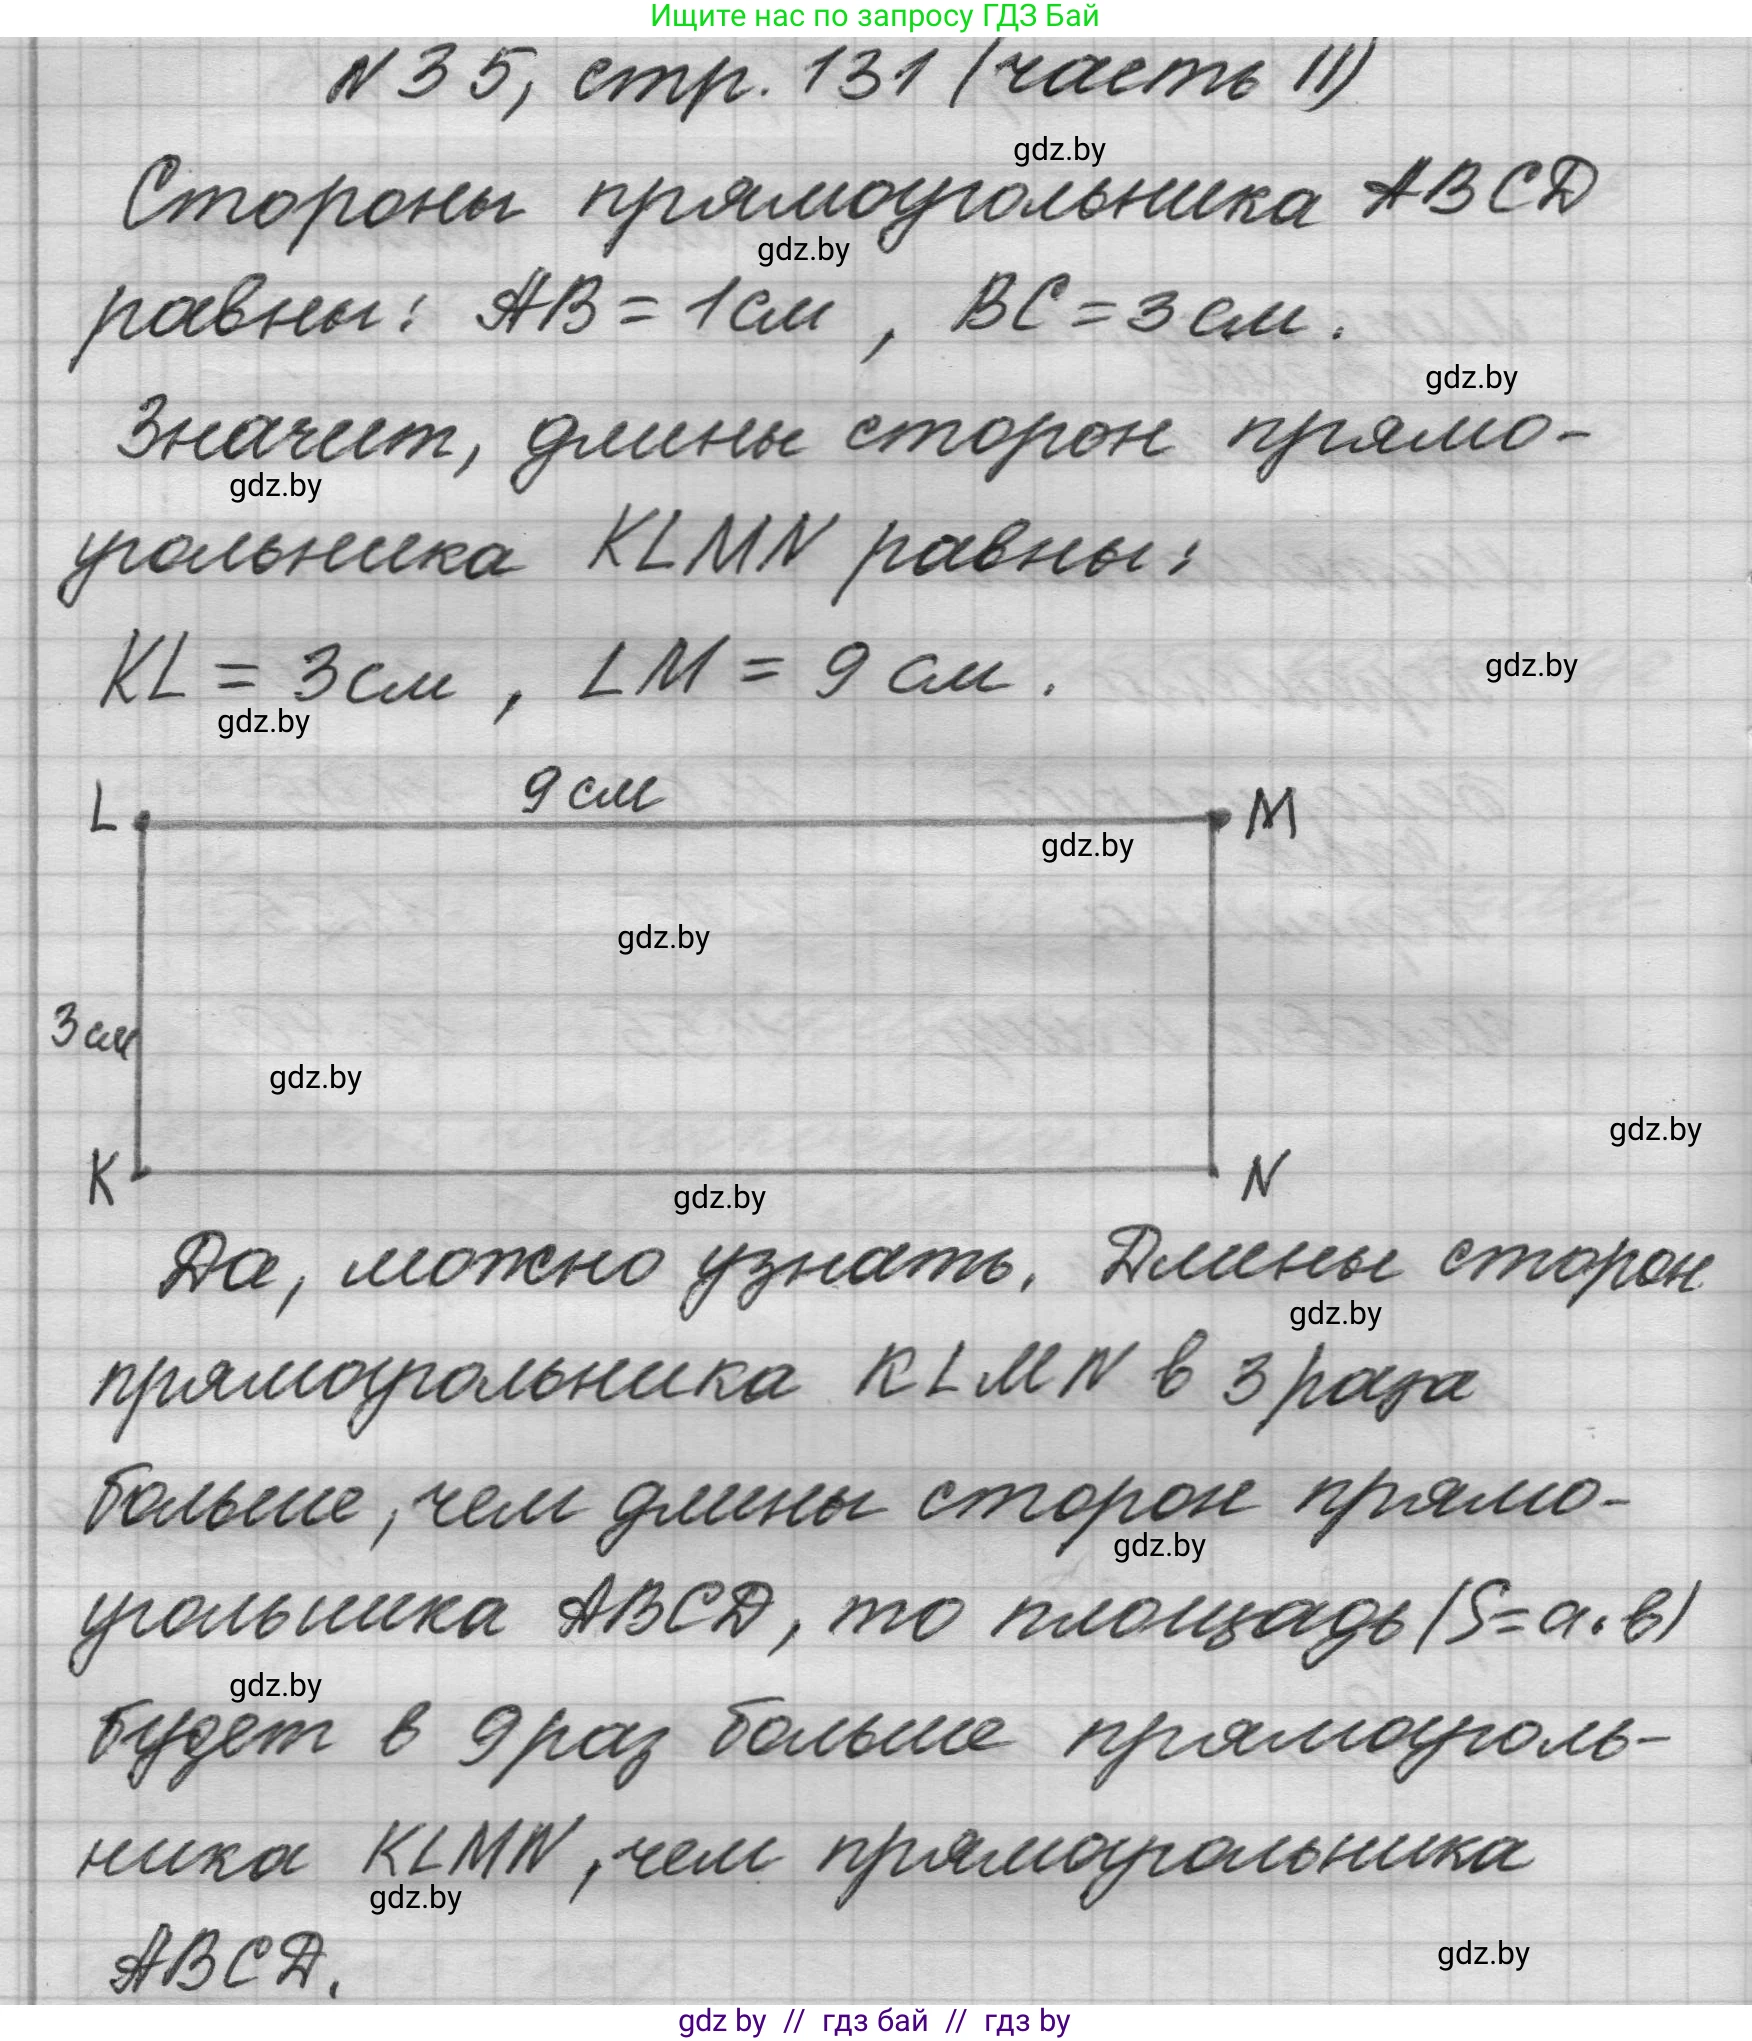 Ищите нас по запросу ГДЗ Бай
N 35, стр. 131 (часть II)
gdz.by
Стороны прямоугольника ABCD
gdz.by
равны: AB = 1 см, BC = 3 см.
gdz.by
Значит, длины сторон прямо-
gdz.by
угольника KLMN равны:
KL = 3 см, LM = 9 см.
gdz.by
gdz.by
9 см
L M
gdz.by
gdz.by
3 см
gdz.by
gdz.by
K N
gdz.by
Да, можно узнать. Длины сторон
gdz.by
прямоугольника KLMN в 3 раза
больше, чем длины сторон прямо-
gdz.by
угольника ABCD, то площадь (S=a·в)
gdz.by
будет в 9 раз больше прямоуголь-
ника KLMN, чем прямоугольника
gdz.by
ABCD.
gdz.by
gdz by // гдз бай // гдз by